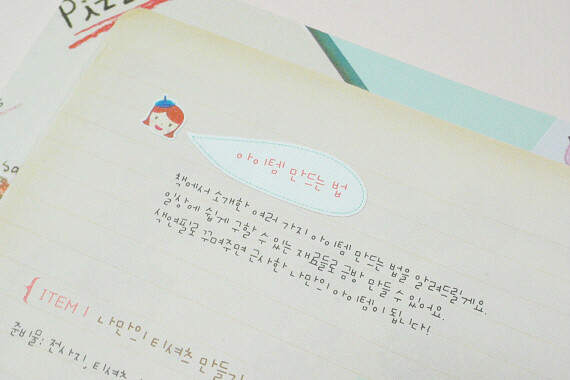 아이템 만드는 법
책에서 소개한 여러 가지 아이템 만드는 법을 알려드릴게요.
일상에 쉽게 구할 수 있는 재료들로 금방 만들 수 있어요.
색연필로 꾸며주면 근사한 나만의 아이템이 됩니다!
ITEM 1 나만의 티셔츠 만들기
준비물: 전사지, 티셔츠,